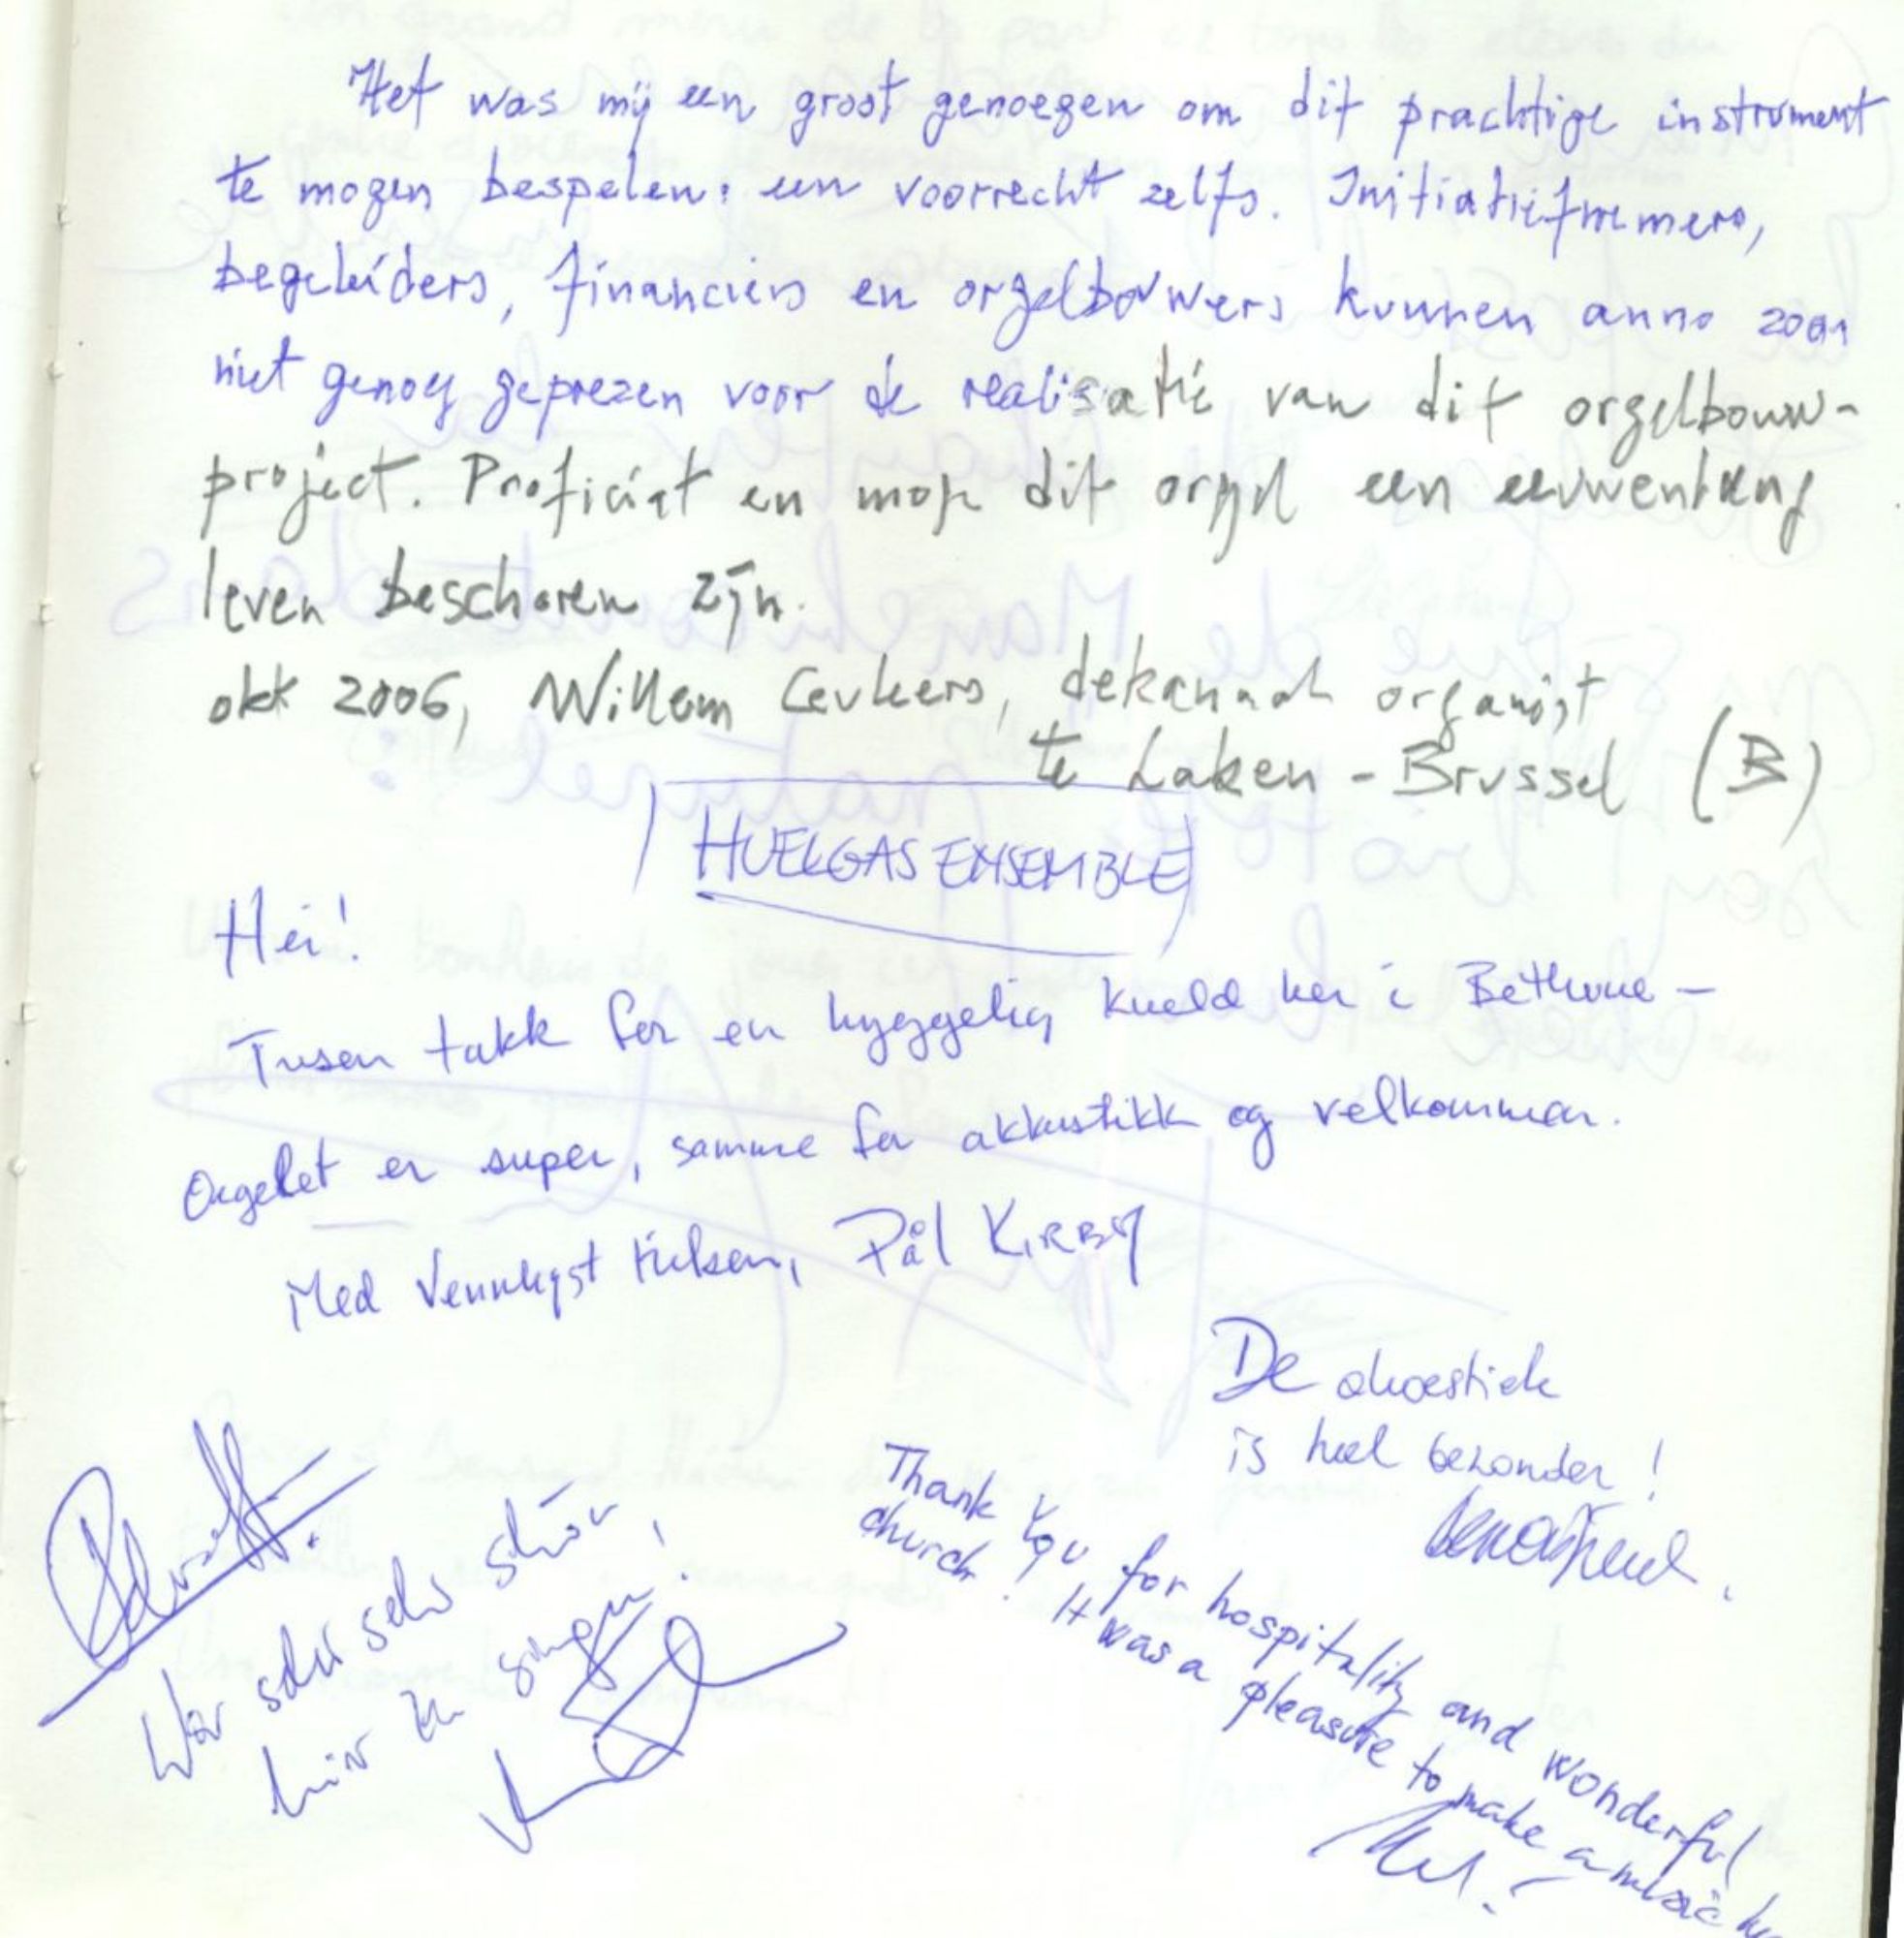 Het was mij een groot genoegen om dit prachtige instrument
te mogen bespelen: een voorrecht zelfs. Initiatiefnemers,
begeleiders, financiers en orgelbouwers kunnen anno 2001
niet genoeg geprezen voor de realisatie van dit orgelbouw-
project. Proficiat en moge dit orgel een eeuwenlang
leven beschoren zijn.
okt 2006, Willem Ceuleers, dekanaal organist
te Laken - Brussel (B)
HUELGAS ENSEMBLE
Hei!
Tusen takk for en hyggelig kveld her i Bethune -
Orgelet er super, samme for akkustikk og velkommen.
Med Vennligst hilsen, Pål KIRBY
De akoestiek
is heel bezonder!
Thank You for hospitality and wonderful
church! It was a pleasure to make a music
War sehr sehr schön
hier zu singen!